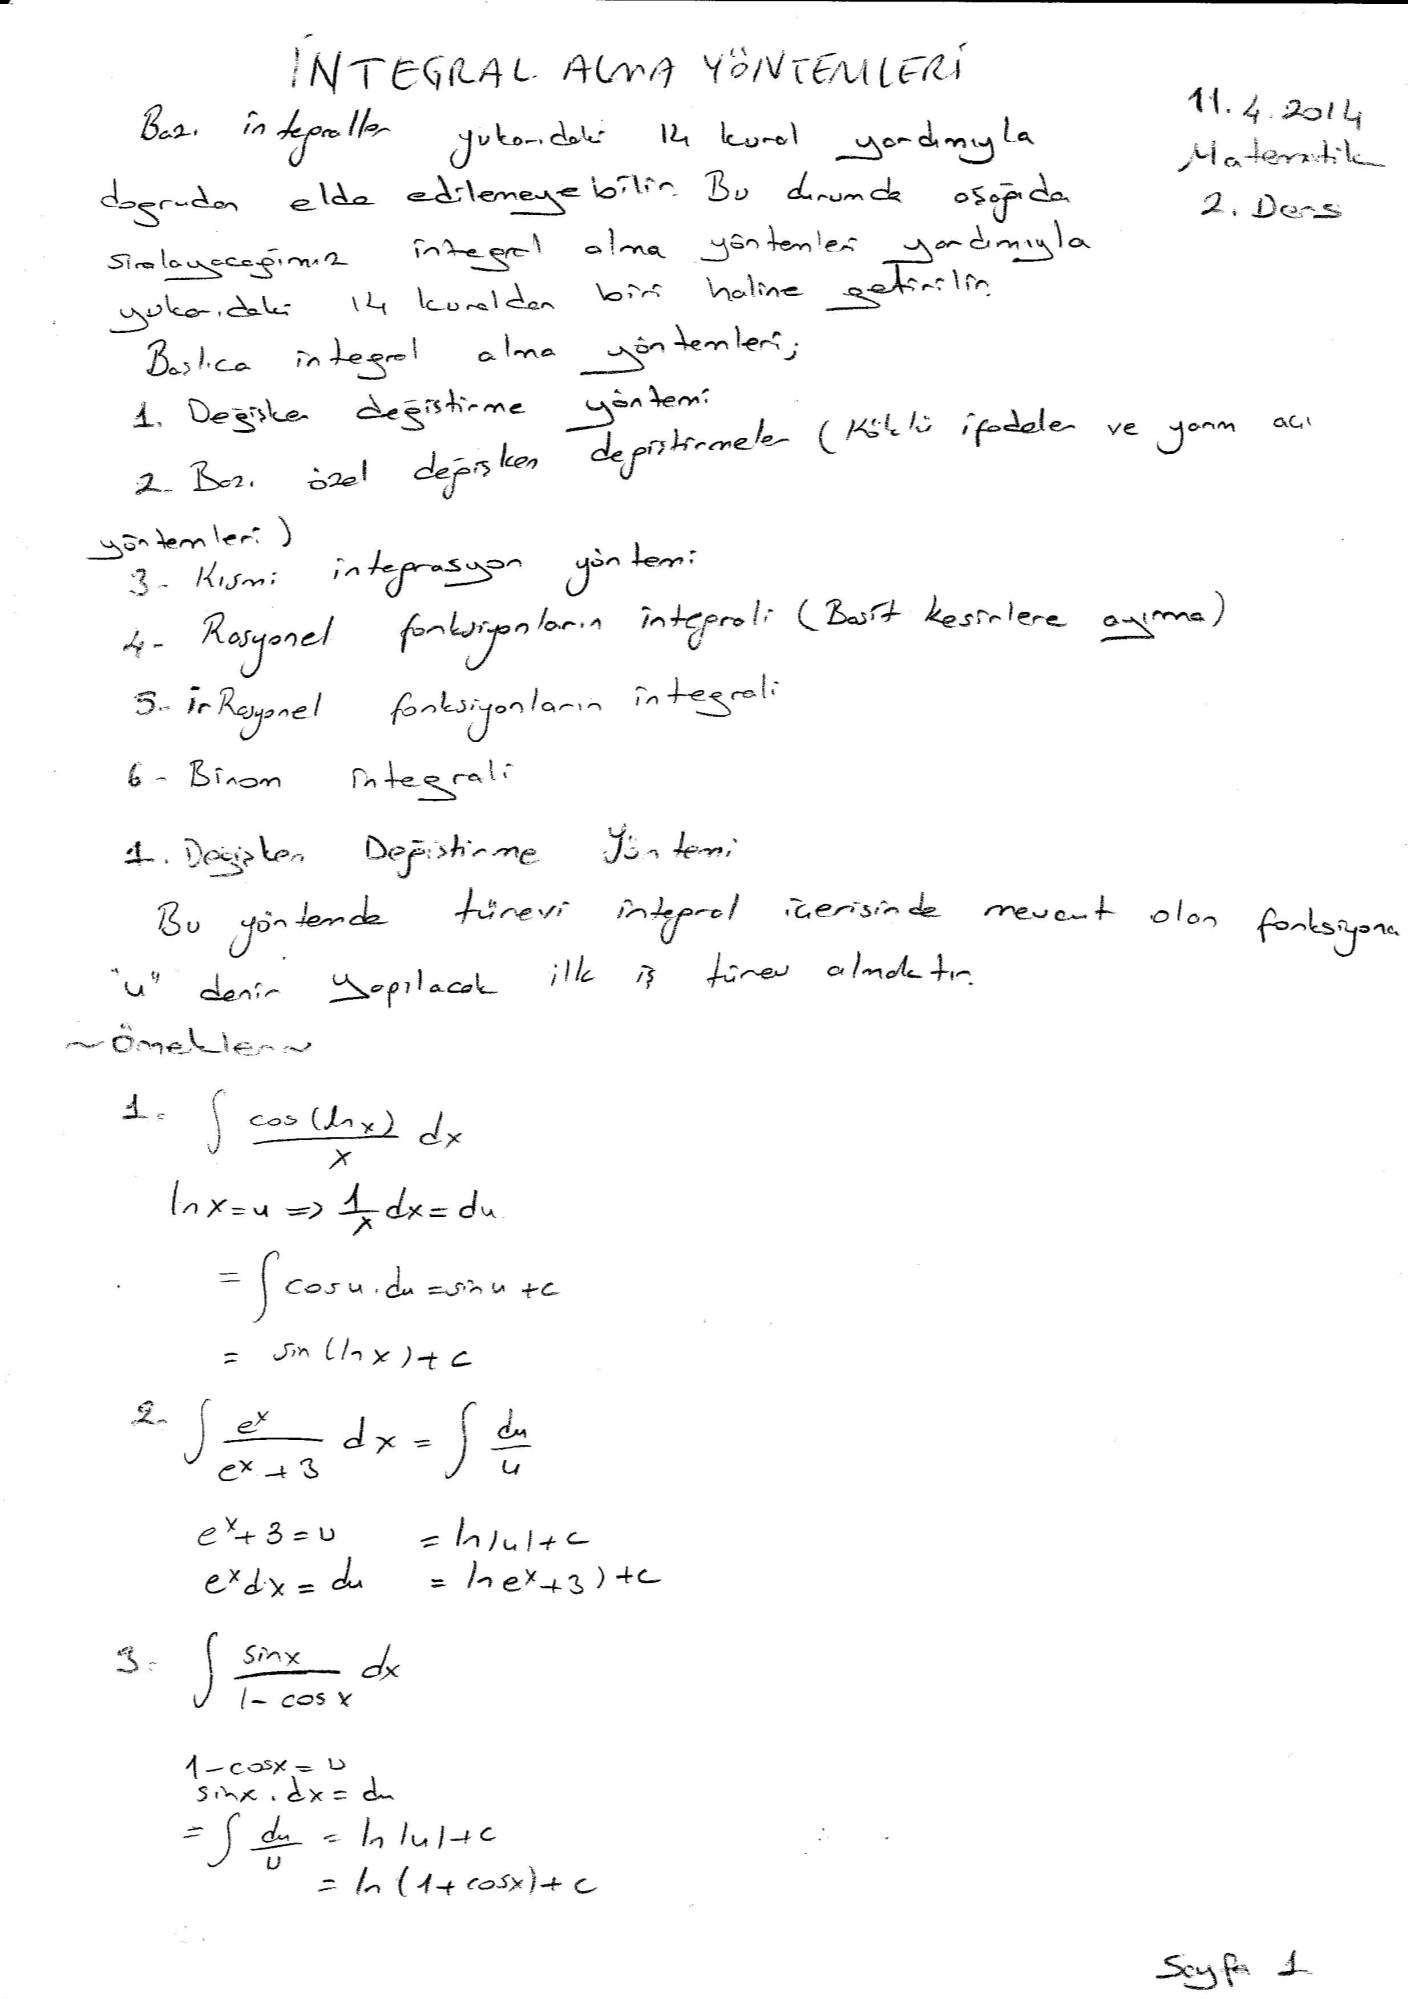 İNTEGRAL ALMA YÖNTEMLERİ
11.4.2014
Matematik
2. Ders
Bazı integraller yukarıdaki 14 kural yardımıyla
doğrudan elde edilemeyebilir. Bu durumda aşağıda
sıralayacağımız integral alma yöntemleri yardımıyla
yukarıdaki 14 kuraldan biri haline getirilir.
Başlıca integral alma yöntemleri;
1. Değişken değiştirme yöntemi
2- Bazı özel değişken değiştirmeler (Köklü ifadeler ve yarım açı
yöntemleri)
3- Kısmi integrasyon yöntemi
4- Rasyonel fonksiyonların integrali (Basit kesirlere ayırma)
5- İrRasyonel fonksiyonların integrali
6- Binom integrali
1. Değişken Değiştirme Yöntemi
Bu yöntemde türevi integral içerisinde mevcut olan fonksiyona
"u" denir yapılacak ilk iş türev almaktır.
~Örnekler~
1- ∫ cos(lnx)/x dx
lnx=u => 1/x dx=du
= ∫cosu.du=sinu+c
= sin(lnx)+c
2- ∫ e^x/(e^x+3) dx = ∫ du/u
e^x+3=u = ln|u|+c
e^xdx=du = lne^x+3)+c
3- ∫ sinx/(1-cosx) dx
1-cosx=u
sinx.dx=du
= ∫ du/u = ln|u|+c
= ln(1+cosx)+c
Sayfa 1